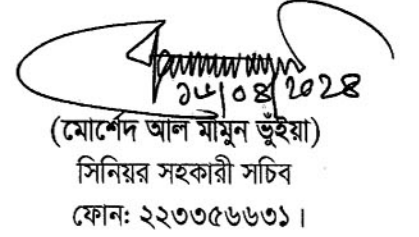 ১৮/০৪/২০২৪
(মোর্শেদ আল মামুন ভুঁইয়া)
সিনিয়র সহকারী সচিব
ফোন: ২২৩৩৫৬৬৩১।